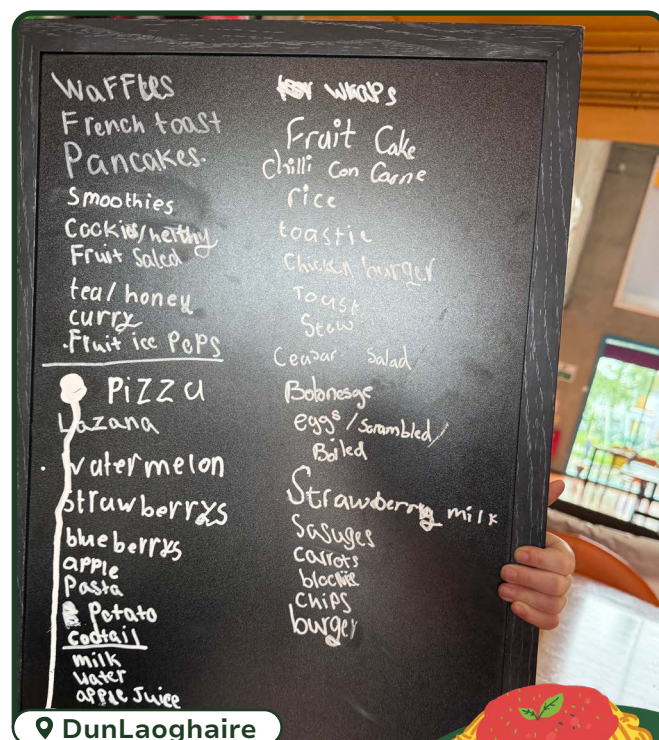 Waffles
French toast
Pancakes.
Smoothies
Cookies/helthy
Fruit Salad
tea/ honey
curry
.Fruit ice PoPs
PiZZa
Lazana
. watermelon
Strawberrys
blueberrys
apple
Pasta
Potato
Coctail
milk
water
apple Juice
wraps
Fruit Cake
Chilli Con Carne
rice
toastie
Chicken burger
Toast
Stew
Ceasar Salad
Bolonesge
eggs/Scrambled/
Boiled
Strawberry milk
Sasuges
carrots
chips
burger
DunLaoghaire